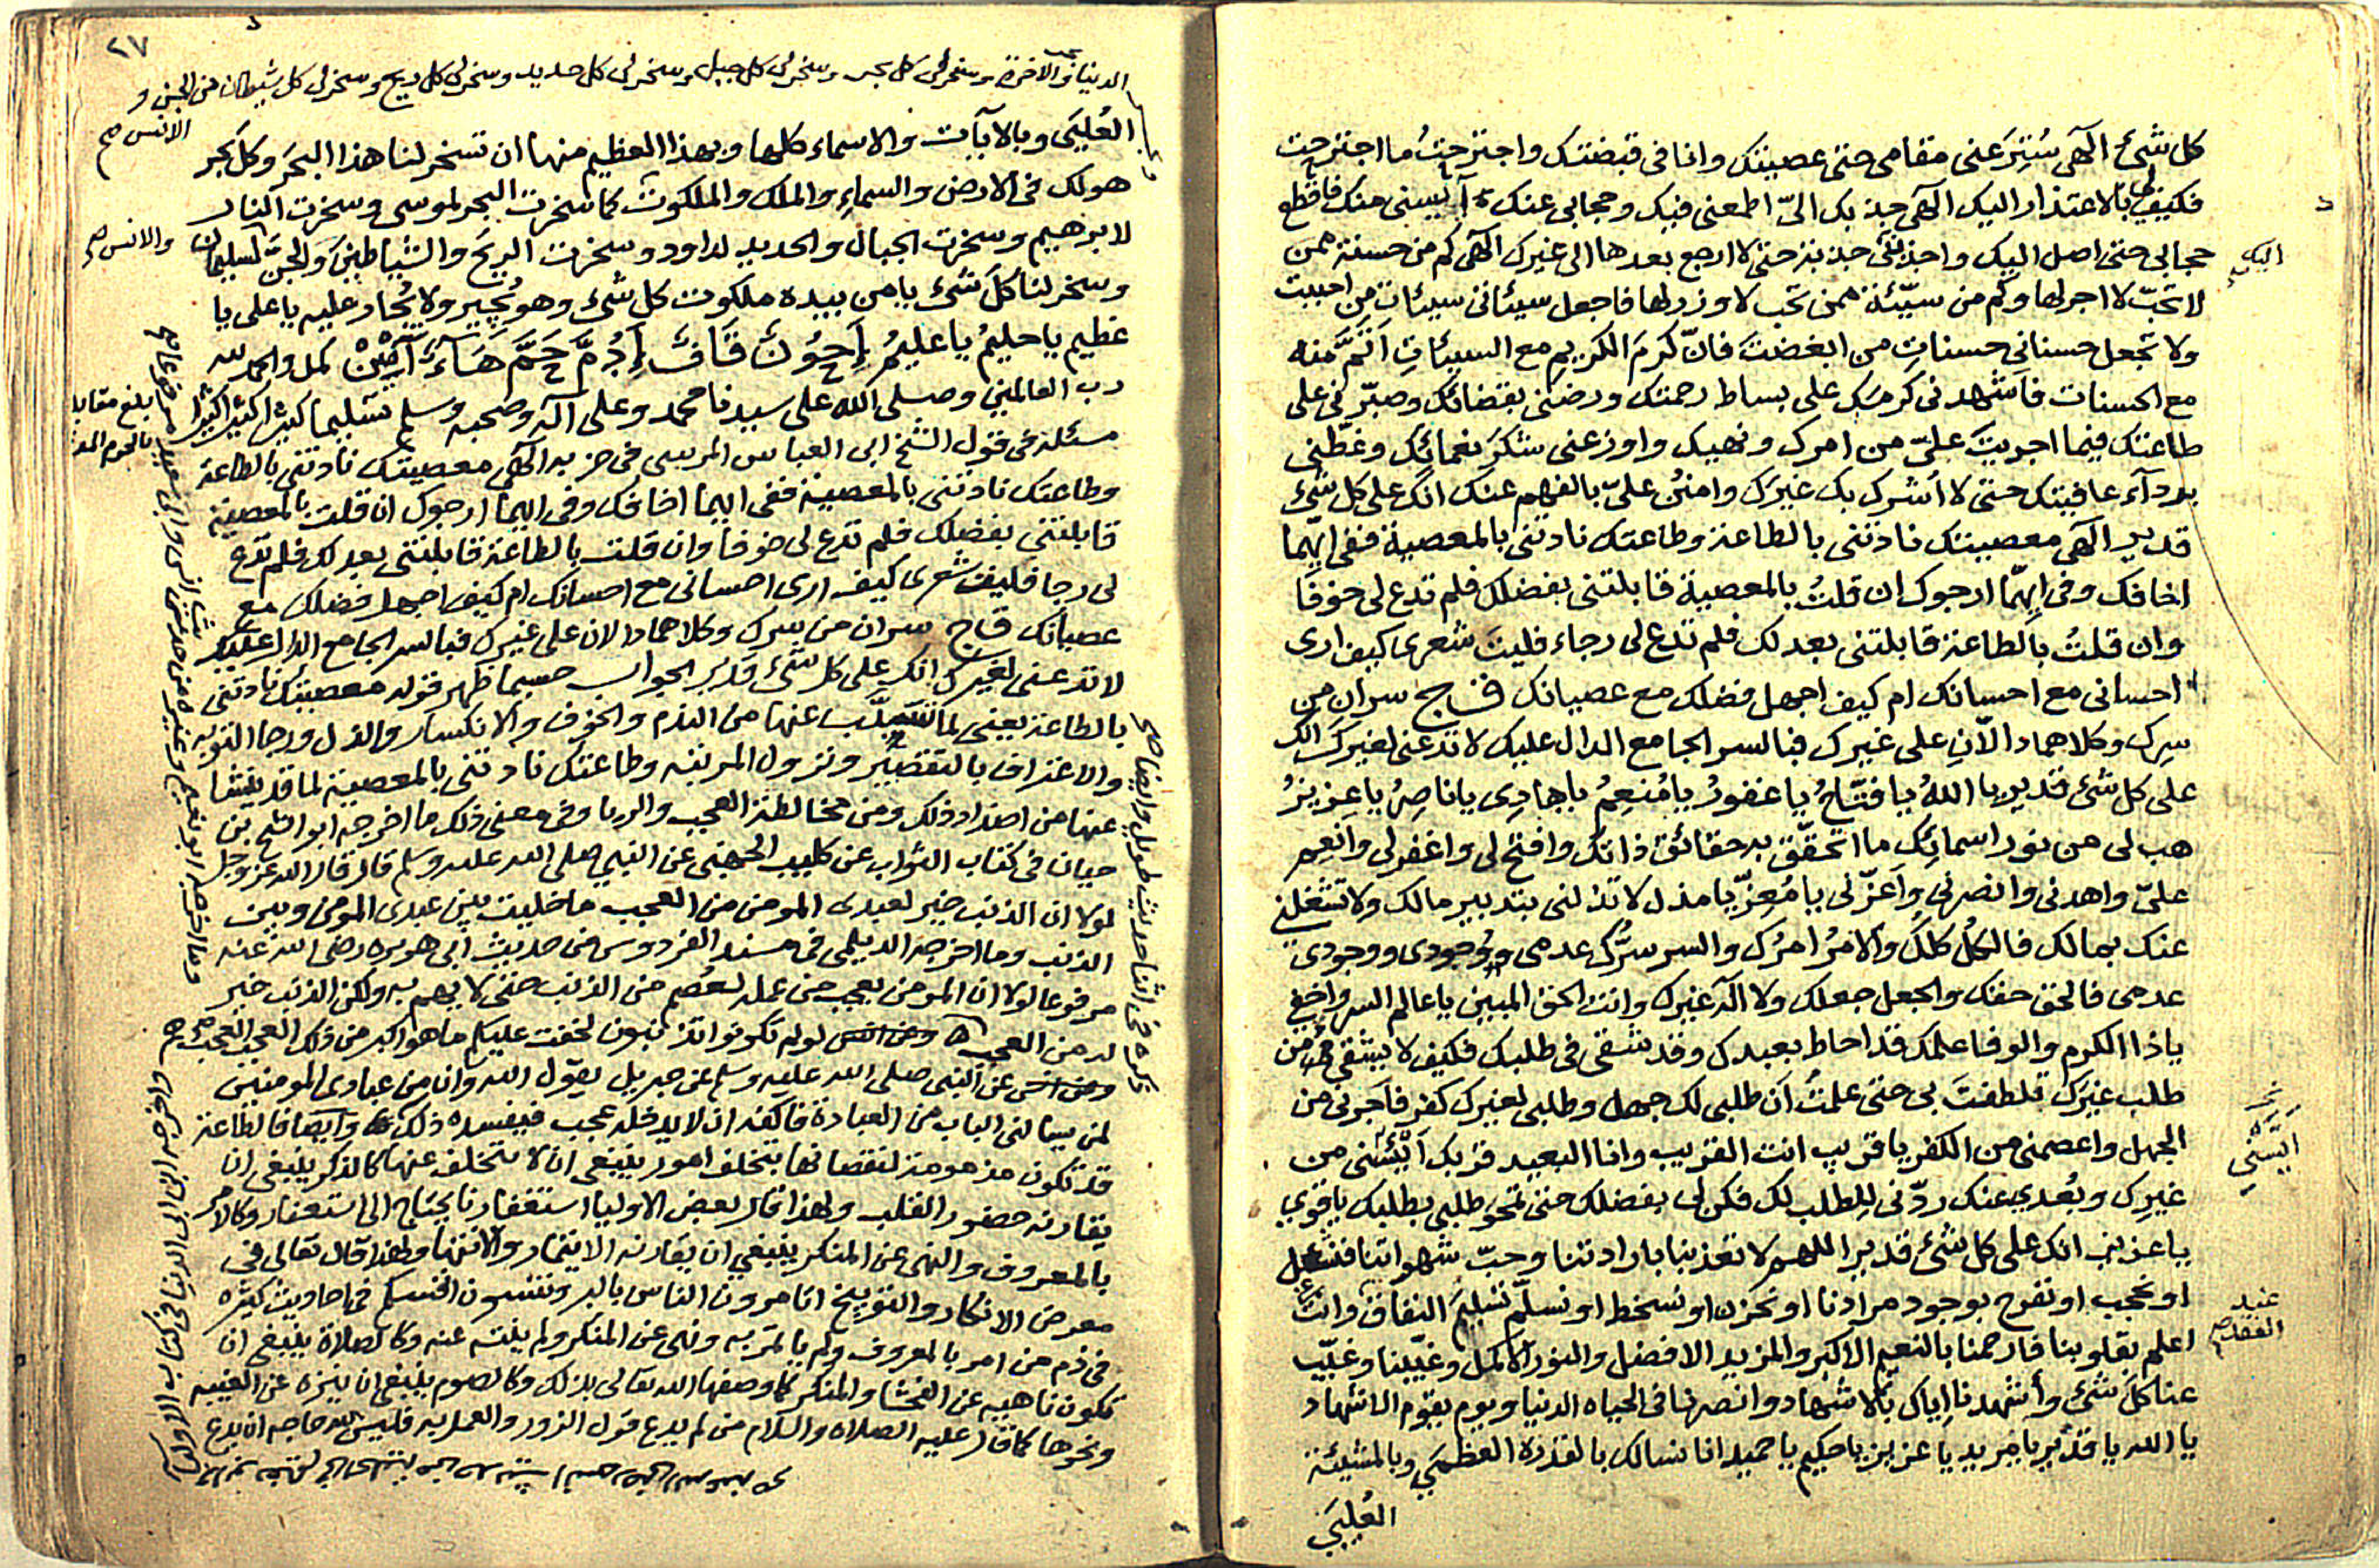 كل شئ الهى سُتِرَ عنى مقامى حتى عصيتك وانا فى قبضتك واجترحتُ ما اجترحت
فكيف لى بالاعتذار اليك الهى جذبك الىّ اطمعنى فيك وحجابى عنك آيسنى منك فاقطع
حجابى حتى اصل اليك واجذبنى جذبة حتى لا ارجع بعدها الى غيرك الهى كم من حسنة ممن
لا تحبّ لا اجر لها وكم من سيّئة ممن تحب لا وزر لها فاجعل سيئاتى سيئات من احببت
ولا تجعل حسناتى حسنات من ابغضت فانّ كرم الكريم مع السيئات اتمّ منه
مع الحسنات فاشهدنى كرمك على بساط رحمتك ورضنى بقضائك وصبّرنى على
طاعتك فيما اجريت علىّ من امرك ونهيك واوزعنى شكر نعمائك وغطّنى
برداء عافيتك حتى لا أشرك بك غيرك وامنن علىّ بالفهم عنك انك على كل شئ
قدير الهى معصيتك نادتنى بالطاعة وطاعتك نادتنى بالمعصية ففى ايّهما
اخافك وفى ايّهما ارجوك ان قلتُ بالمعصية قابلتنى بفضلك فلم تدع لى خوفًا
وان قلتُ بالطاعة قابلتنى بعدلك فلم تدع لى رجاء فليت شعرى كيف ارى
احسانى مع احسانك ام كيف اجهل فضلك مع عصيانك ق ج سران من
سرك وكلاهما دالّان على غيرك فبالسر الجامع الدال عليك لا تدعنى لغيرك انك
على كل شئ قدير يا اللهُ يا فتّاحُ يا غفورُ يا مُنعِمُ يا هادِى يا ناصِرُ يا عزيزُ
هب لى من نور اسمائك ما اتحقّق به حقائق ذاتك وافتح لى واغفر لى وانعِم
علىّ واهدنى وانصرنى واَعزّنى يا مُعِزّ يا مذل لا تذلنى بتدبير مالك ولا تشغلنى
عنك بمالك فالكلُّ كلّكَ والامرُ امرُك والسر سرُّك عدمى وجودى ووجودى
عدمى فالحق حقك والجعل جعلك ولا اله غيرك وانت الحق المبين يا عالم السر واخفى
ياذا الكرم والوفا علمك قد احاط بعبدك وقد شقى فى طلبك فكيف لا يشقى من
طلب غيرك تلطفتَ بى حتى علمتُ اَن طلبى لك جهل وطلبى لغيرك كفر فاَجرنى من
الجهل واعصمنى من الكفر يا قريب انت القريب وانا البعيد قربك اَيْئَسَنى من
غيرك وبُعدى عنك ردّنى لِلطلب لك فكن لى بفضلك حتى تمحو طلبى بطلبك يا قوى
يا عزيز انك على كل شئ قدير اللهم لا تعذبنا بارادتنا وحبّ شهواتنا فنشغل
او نحجب او نفرح بوجود مرادنا او نحزن او نسخط او نسلّم تسليمَ النفاق وانت
اعلم بقلوبنا فارحمنا بالنعيم الاكبر والمزيد الافضل والنور الاكمل وغيّبنا وغيّب
عنا كلّ شئ وأشهدنا اياك بالاشهاد وانصرنا فى الحياه الدنيا ويوم يقوم الاشهاد
يا الله يا قدير يا مريد يا عزيز يا حكيم يا حميد انا نسالك بالقدرة العظمى وبالمشيئة
العُليَى
اليك
اَيْئَسَنى
عند
الفقد
٢٧
الدنيا والاخرة وسخر لى كل بحر وسخر لى كل جبل وسخر لى كل حديد وسخر لى كل ريح وسخر لى كل شيطان من الجن و
الانس صح
العُليَى وبالايات والاسماء كلها وبهذا العظيم منها ان تسخر لنا هذا البحرَ وكل بحر
هو لك فى الارض والسماءِ والملك والملكوت كما سخرت البحر لموسى وسخرت النار
لابرهيم وسخرت الجبال والحديد لداود وسخرت الريحَ والشياطينَ والجنّ لسليمان
والانس صح
وسخر لنا كلّ شئ يا من بيده ملكوت كل شئ وهو يُجير ولا يُجار عليه يا على يا
عظيم يا حليمُ يا عليمُ اَحُوْنٌ قَافْ اَدُمَّ حَمَّ هَاءٌ آمِيْن كمل والحمد لله
رب العالمين وصلى الله على سيدنا محمد وعلى اله وصحبه وسلم تسليما كثيرا كثيرا
مسئلة فى قول الشيخ ابى العباس المرسى فى حزبه الهى معصيتك نادتنى بالطاعة
وطاعتك نادتنى بالمعصية ففى ايهما اخافك وفى ايهما ارجوك ان قلت بالمعصية
قابلتنى بفضلك فلم تدع لى خوفا وان قلت بالطاعة قابلتنى بعدلك فلم تدع
لى رجا فليت شعرى كيف ارى احسانى مع احسانك ام كيف اجهل فضلك مع
عصيانك ق ج سران من سرك وكلاهما دالان على غيرك فبالسر الجامع الدال عليك
لا تدعنى لغيرك انك على كل شئ قدير الجواب حسبما ظهر قوله معصيتك نادتنى
بالطاعة يعنى لما تسبب عنها من الندم والخوف والانكسار والذل ورجا التوبه
والاعتراف بالتقصير ونزول المرتبه وطاعتك نادتنى بالمعصية لما قد ينشا
عنها من اضداد ذلك ومن مخالطة العجب والريا وفى معنى ذلك ما اخرجه ابو الشيخ بن
حيان فى كتاب الثواب عن كليب الجهنى عن النبى صلى الله عليه وسلم قال قال الله عز وجل
لولا ان الذنب خير لعبدى المومن من العجب ما خليت بين عبدى المومن وبين
الذنب وما اخرجه الديلمى فى مسند الفردوس من حديث ابى هريره رضى الله عنه
مرفوعا لولا ان المومن يعجب من عمله لعُصم من الذنب حتى لا يهم به ولكن الذنب خير
له من العجب لو لم تكونوا تذنبون لخفت عليكم ما هو اكبر من ذلك العجب العجب
عن النبى صلى الله عليه وسلم عن جبريل يقول الله وان من عبادى المومنين
لمن يسالنى الباب من العبادة فاكفه ان لا يدخله عجب فيفسده ذلك وايضا فالطاعة
قد تكون مذمومة لنقصانها بتخلف امور ينبغى ان لا تتخلف عنها كالذكر ينبغى ان
يقارنه حضور القلب ولهذا قال بعض الاوليا استغفارنا يحتاج الى استغفار وكالامر
بالمعروف والنهى عن المنكر ينبغى ان يقارنه الايتمار والانتها ولهذا قال تعالى فى
معرض الانكار والتوبيخ اتامرون الناس بالبر وتنسون انفسكم فى احاديث كثيره
فى ذم من امر بالمعروف ولم ياتمر به ونهى عن المنكر ولم ينته عنه وكالصلاة ينبغى ان
تكون ناهيه عن الفحشا والمنكر كما وصفها الله تعالى بذلك وكالصوم ينبغى ان ينزه عن الغيبه
ونحوها كما قال عليه الصلاه والسلام من لم يدع قول الزور والعمل به فليس لله حاجه ان يدع
بلغ مقابلة
ذكره فى اثنا حديث طويل وايضا صح
واخرجه ابن ابى الدنيا فى كتاب الاوليا